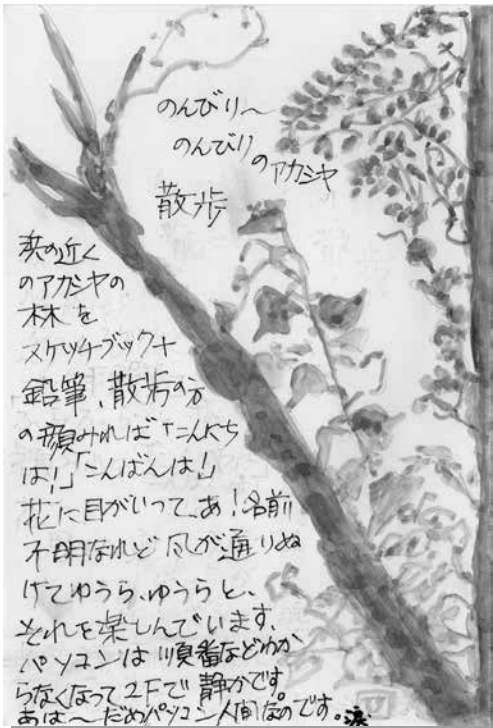 のんびり〜
のんびり
のアカシヤ
散歩
の近く
のアカシヤの
林を
スケッチブック+
鉛筆、散歩の方
の顔みれば「こんにち
は!」「こんばんは!」
花に目がいって、あ!名前
不明なれど 風が通りぬ
けてゆうら、ゆうらと、
それを楽しんでいます、
パソコンは順番などわか
らなくなって2Fで静かです。
あは〜だめパソコン人間なのです。涙